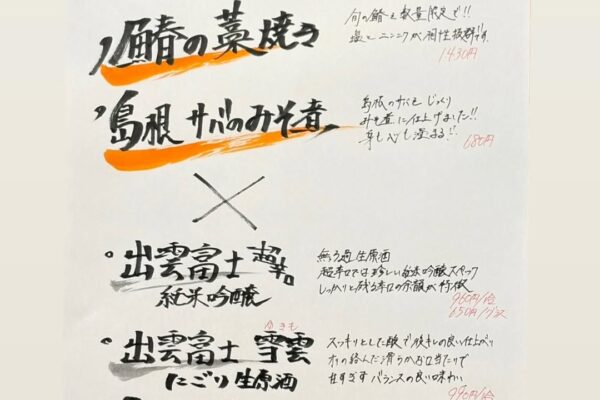 鰆の藁焼き
旬の鰆を数量限定で!!
塩とニンニクが相性抜群です。
1430円
島根 サバのみそ煮
島根のサバをじっくり
みそ煮に仕上げました!!
身も心も温まる!!
680円
×
出雲富士 超辛口
純米吟醸
無ろ過生原酒
超辛口では珍しい純米吟醸スペック
しっかりと残る辛口の余韻が特徴
960円/合
650円/グラス
出雲富士 雪雲
ゆきも
にごり生原酒
スッキリとした酸で後キレの良い仕上がり
オリの絡んだ滑らかな口当たりで
甘すぎずバランスの良い味わい
990円/合